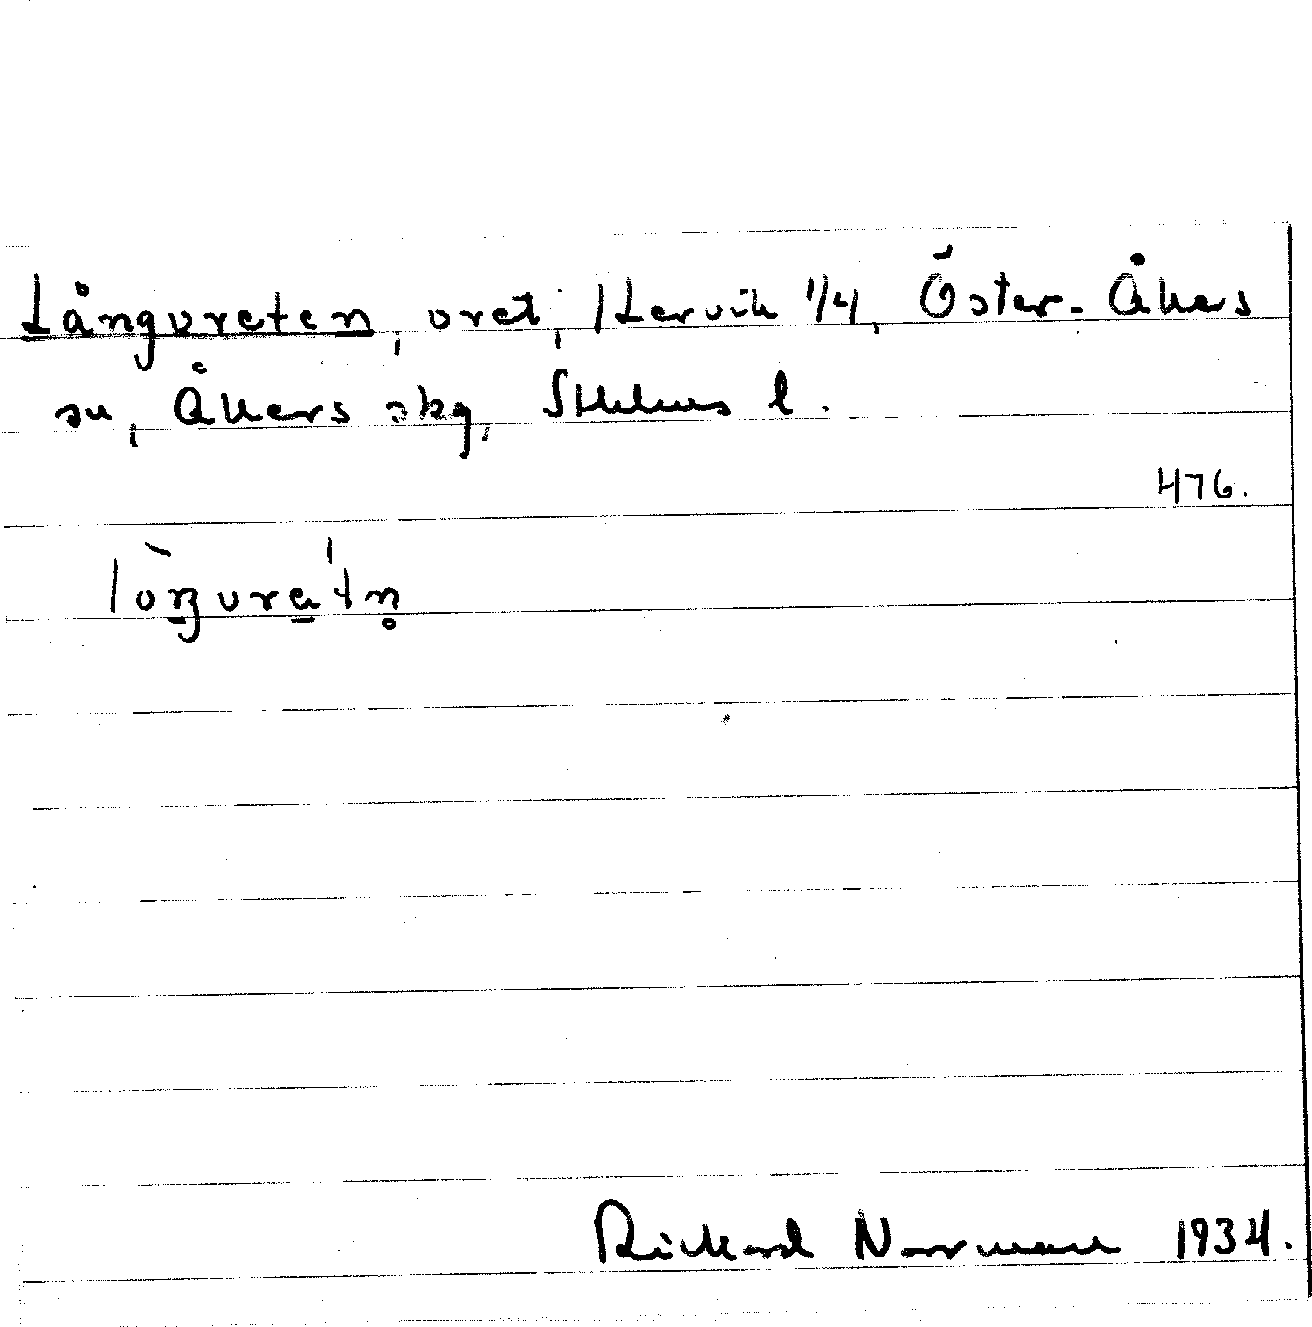 Långvreten, vret, Härvik 1/4, Öster-Åkers
sn, Åkers skg, Sthlms l.
476.
lòŋvre̱ˈtn̥
Rickard Norrman 1934.